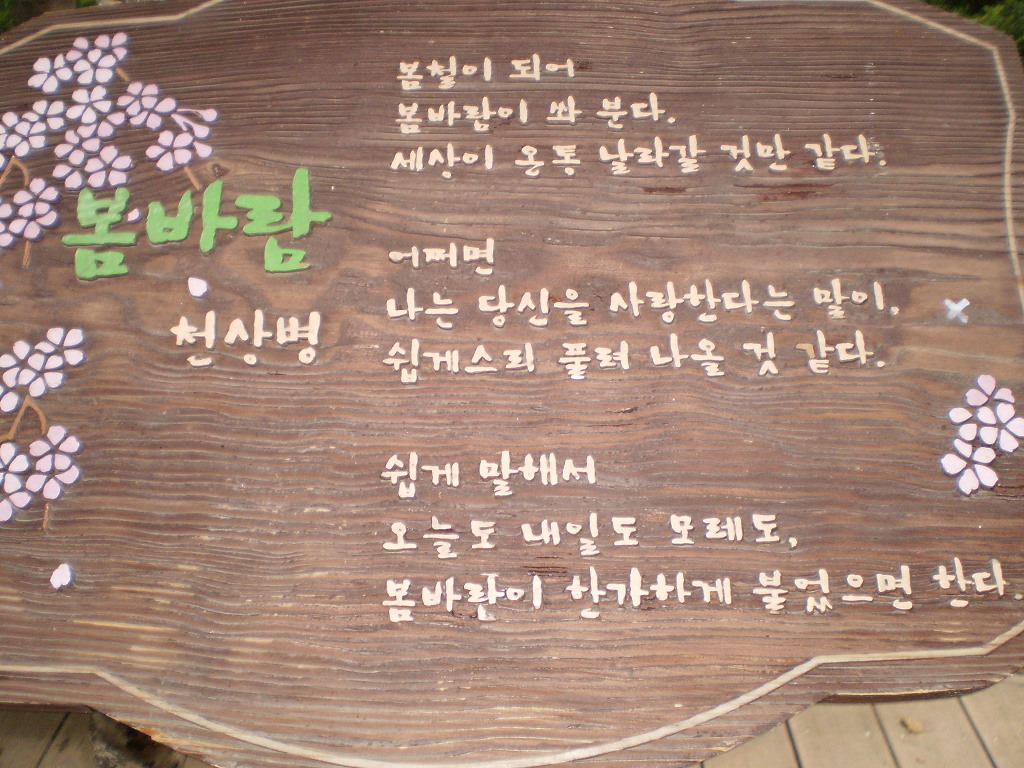 봄바람
천상병
봄철이 되어
봄바람이 쏴 분다.
세상이 온통 날라갈 것만 같다.
어쩌면
나는 당신을 사랑한다는 말이,
쉽게스리 풀려 나올 것 같다.
쉽게 말해서
오늘도 내일도 모레도,
봄바람이 한가하게 불었으면 한다.